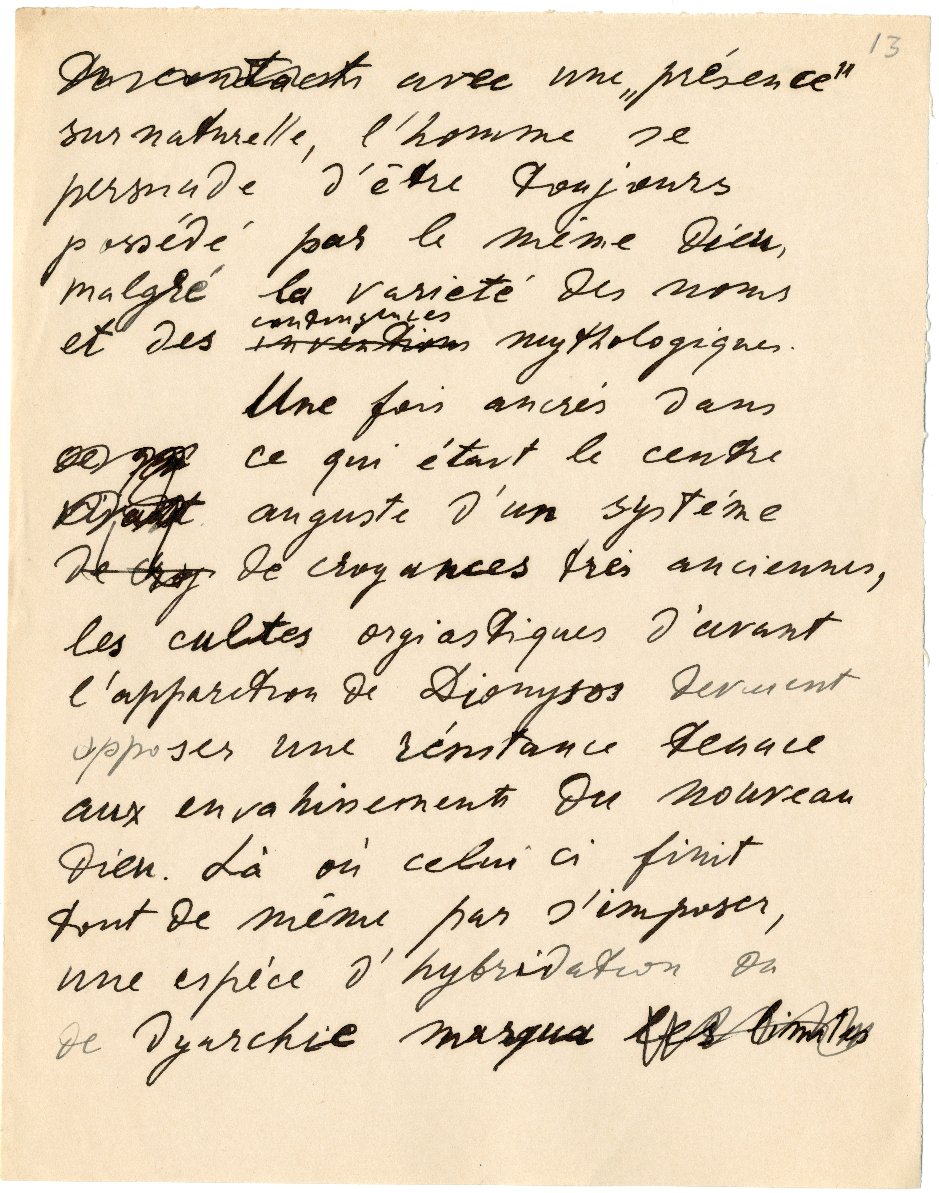 13
avec une „présence"
surnaturelle, l'homme se
persuade d'être toujours
possédé par le même Dieu,
malgré la varieté des noms
et des contingences
inventions mythologiques.
Une fois ancrés dans
ce qui était le centre
auguste d'un systéme
de croy de croyances tres anciennes,
les cultes orgiastiques d'avant
l'apparition de Dionysos devaient
opposer une résistance tenace
aux envahissements du nouveau
Dieu. Là où celui ci finit
tout de même par s'imposer,
une espéce d'hybridation ou
de dyarchie marqua les limites